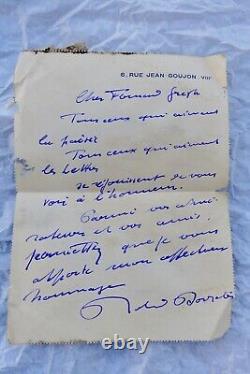 6, RUE JEAN GOUJON. VIIIe
Cher Fernand Gregh
Tous ceux qui aiment
la poésie
Tous ceux qui aiment
les Lettres
se réjouissent de vous
voir à l'honneur.
Parmi vos admi-
rateurs et vos amis
permettez que je vous
apporte mon affectueux
hommage